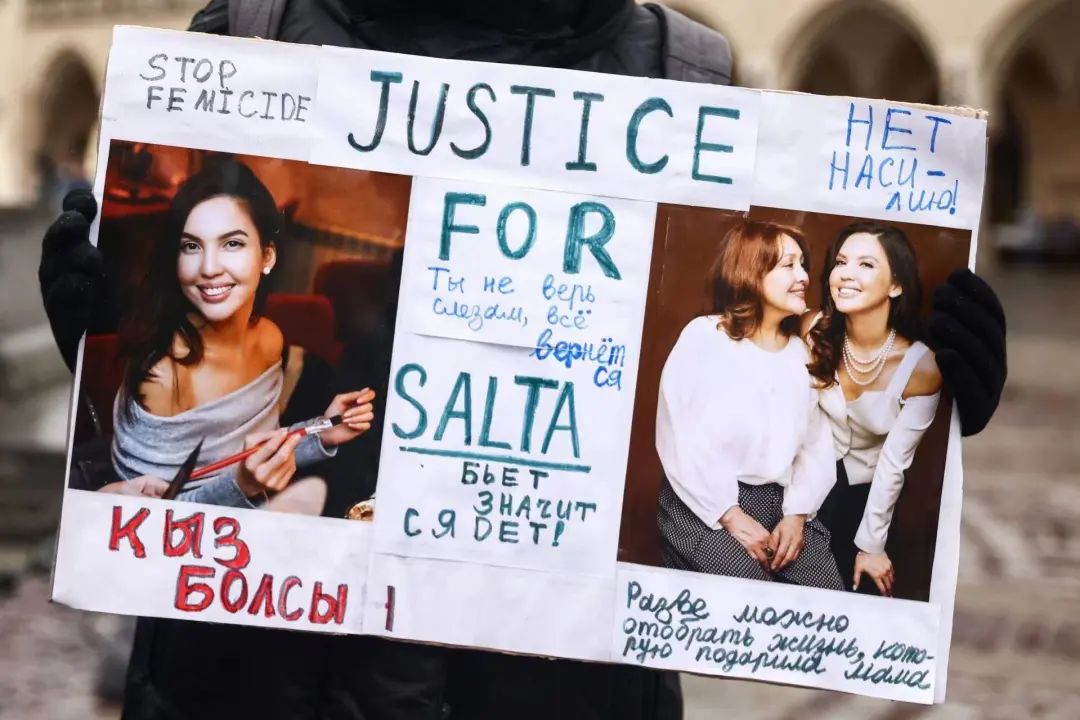 STOP
FEMICIDE
JUSTICE
НЕТ
НАСИ-
ЛИЮ!
FOR
Ты не верь
слезам, всё
вернёт
ся
SALTA
БЬЕТ
ЗНАЧИТ
СЯДЕТ!
ҚЫЗ
БОЛСЫН
Разве можно
отобрать жизнь, кото-
рую подарила мама